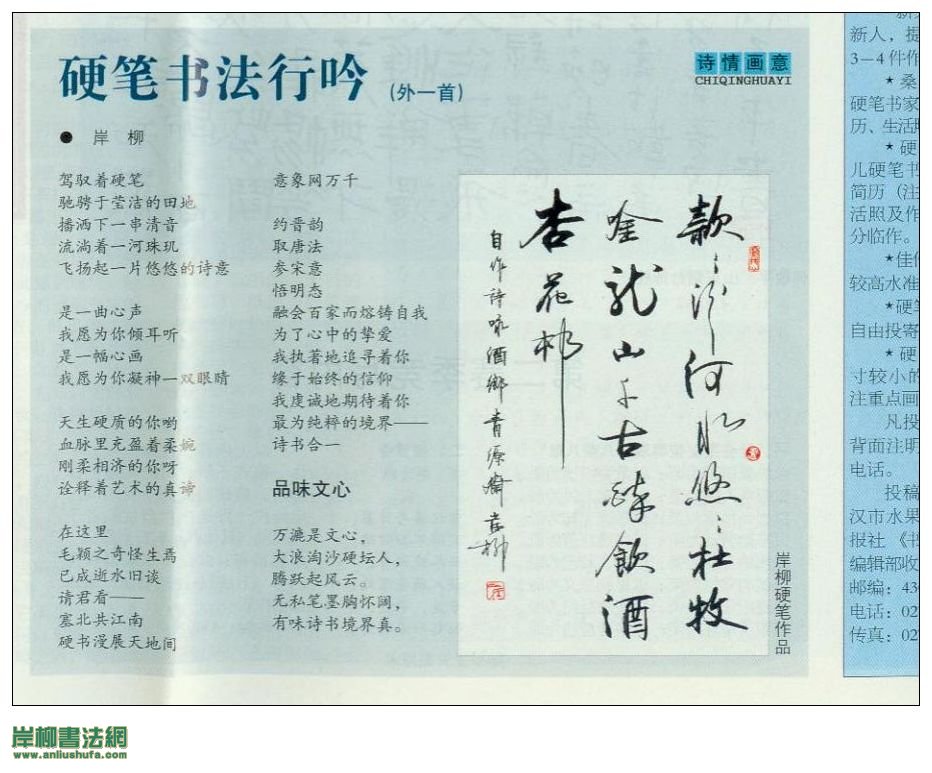 硬笔书法行吟 (外一首)
诗情画意
CHIQINGHUAYI
● 岸 柳
驾驭着硬笔
驰骋于莹洁的田地
播洒下一串清音
流淌着一河珠玑
飞扬起一片悠悠的诗意
是一曲心声
我愿为你倾耳听
是一幅心画
我愿为你凝神一双眼睛
天生硬质的你哟
血脉里充盈着柔婉
刚柔相济的你呀
诠释着艺术的真谛
在这里
毛颖之奇怪生焉
已成逝水旧谈
请君看——
塞北共江南
硬书漫展天地间
意象网万千
约晋韵
取唐法
参宋意
悟明态
融会百家而熔铸自我
为了心中的挚爱
我执著地追寻着你
缘于始终的信仰
我虔诚地期待着你
最为纯粹的境界——
诗书合一
品味文心
万漉是文心，
大浪淘沙硬坛人，
腾跃起风云。
无私笔墨胸怀阔，
有味诗书境界真。
歌汾河水悠悠杜牧
吟龙山千古醉饮酒
杏花村
自作诗咏酒乡 青源斋岸柳
岸柳硬笔作品
新人，提
3—4件作
★桑
硬笔书家
历、生活照
★硬
儿硬笔书
简历（注
活照及作
分临作。
★佳作
较高水准
★硬笔
自由投寄
★硬
寸较小的
注重点画
凡投
背面注明
电话。
投稿
汉市水果
报社《书
编辑部收
邮编：43
电话：02
传真：02
岸柳書法網
www.anliushufa.com